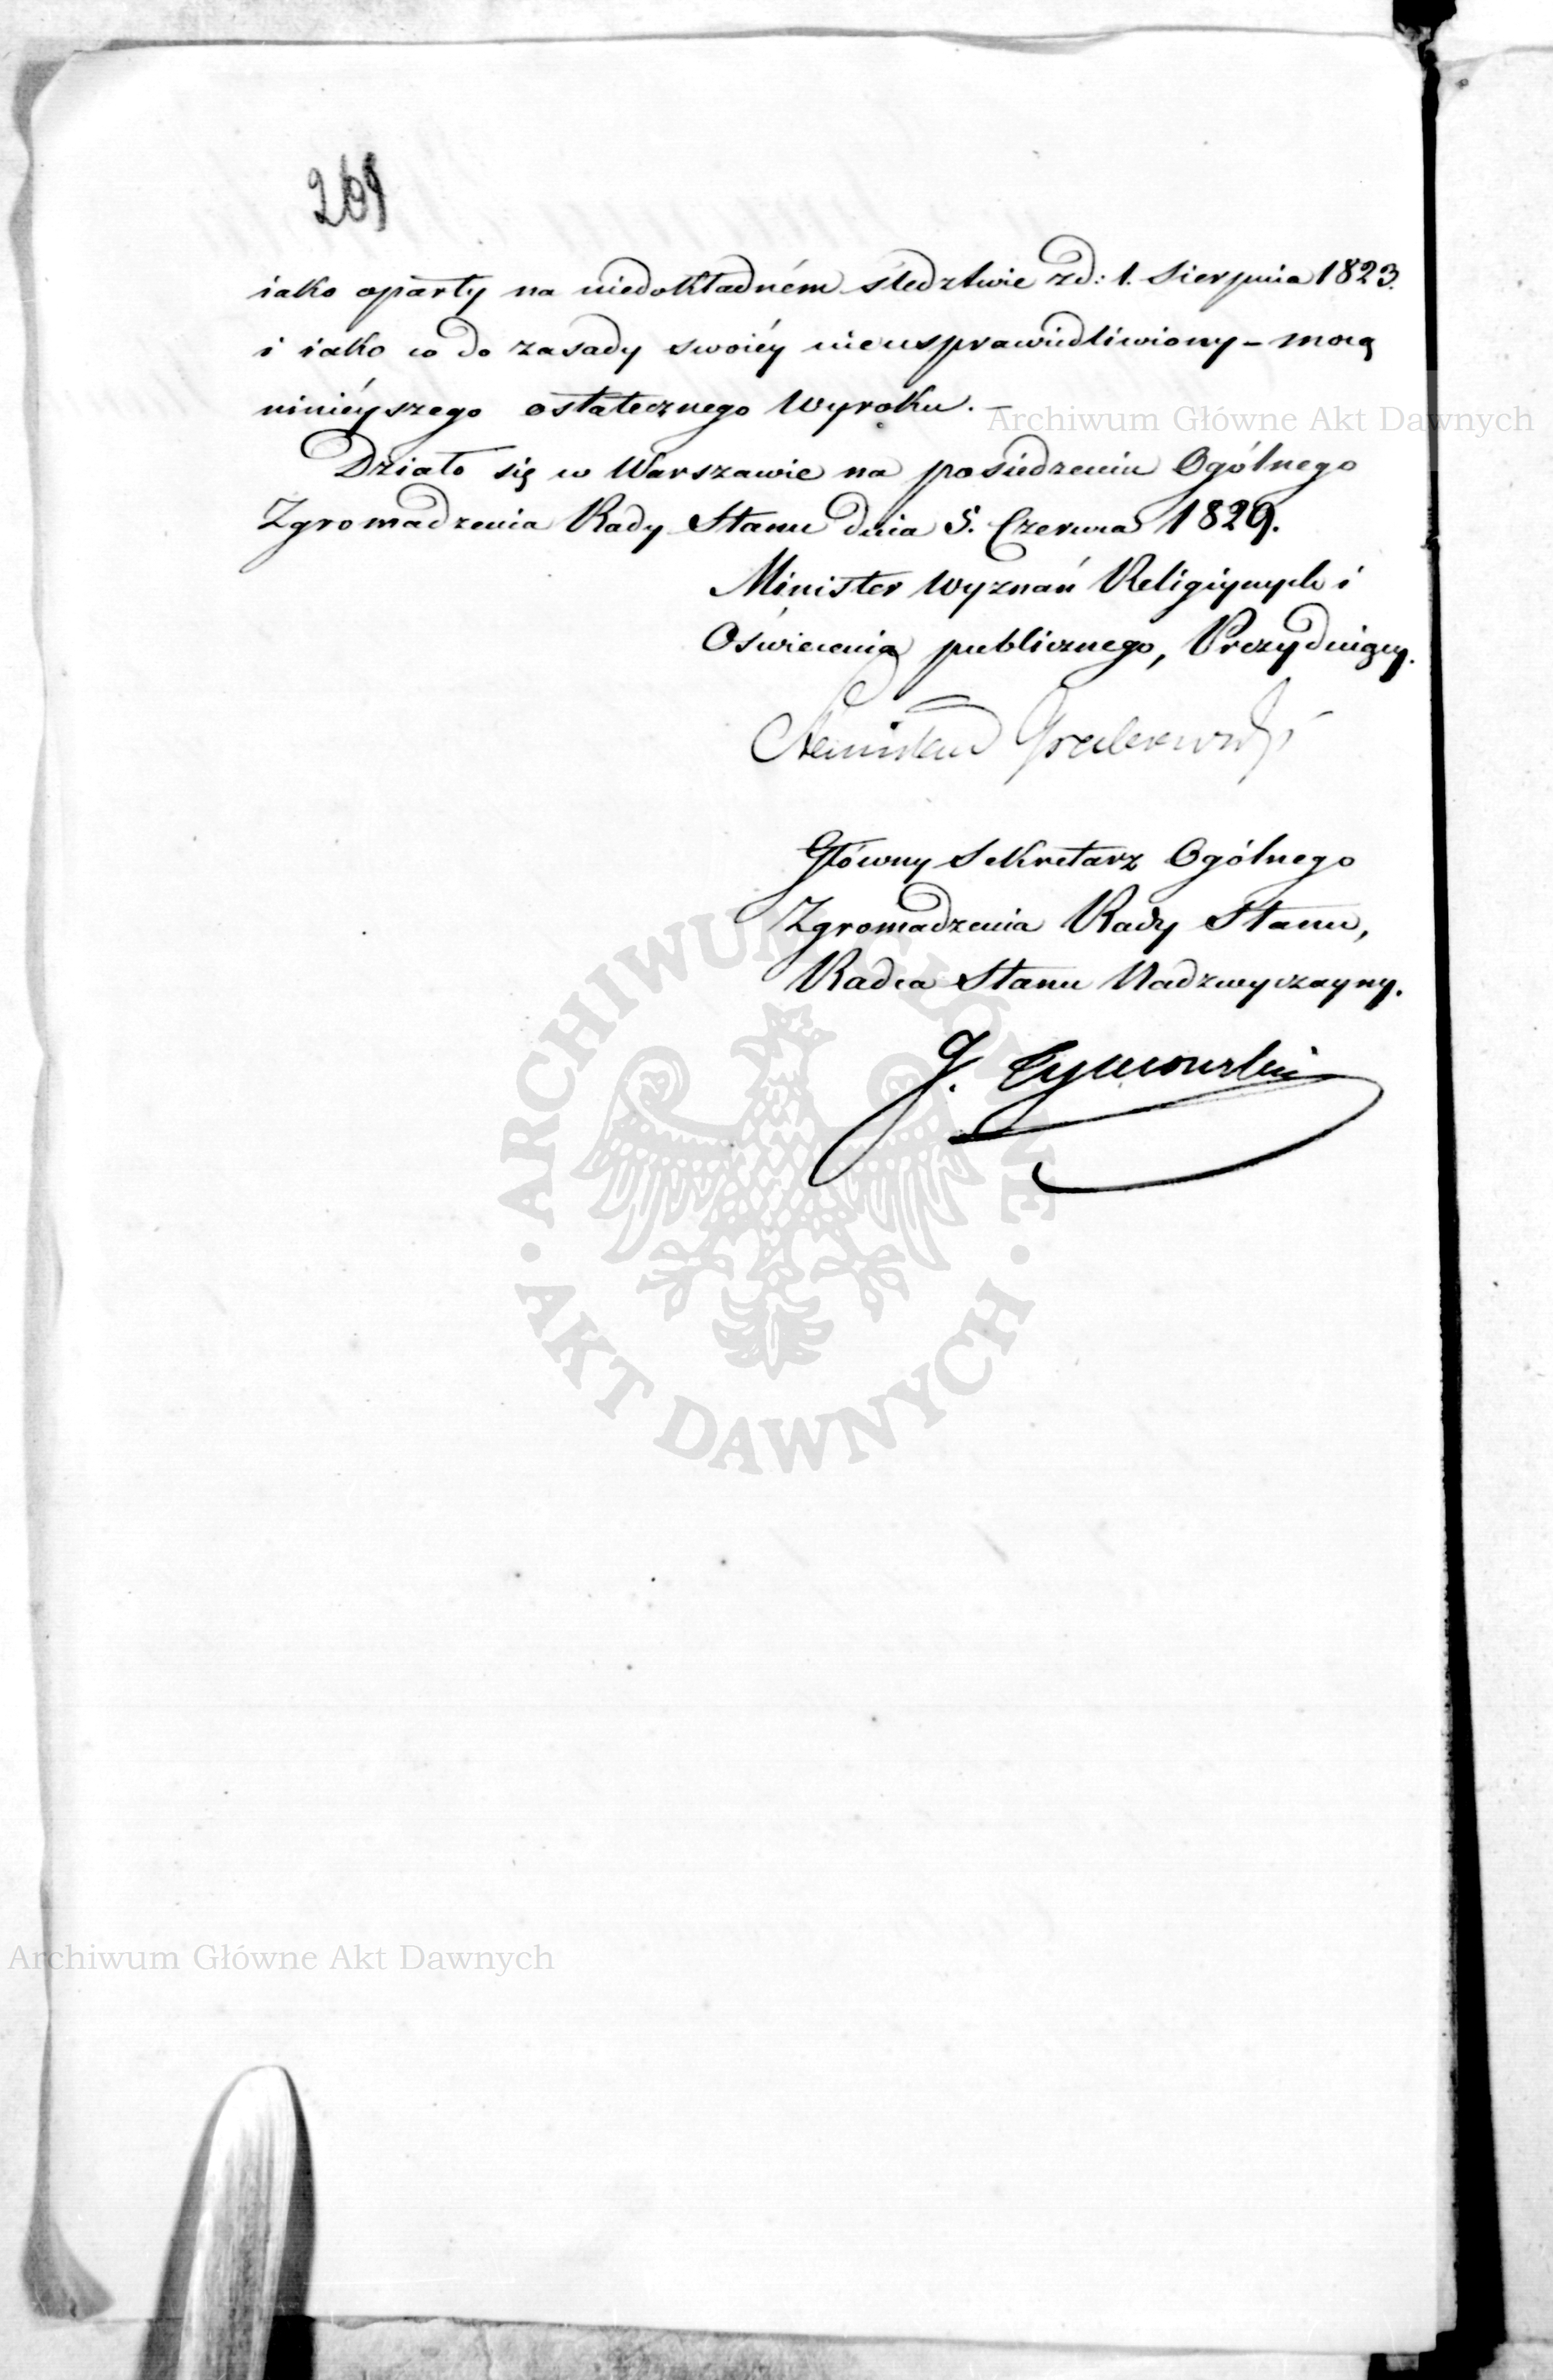 269
iako oparty na niedokładném śledztwie zd: 1. Sierpnia 1823.
i iako co do zasady swoiéy nieusprawiedliwiony – mocą
niniéyszego ostatecznego Wyroku. –
Archiwum Główne Akt Dawnych
Działo się w Warszawie na posiedzeniu Ogólnego
Zgromadzenia Rady Stanu dnia 5. Czerwca 1829.
Minister Wyznań Religiynych i
Oświecenia publicznego, Prezyduiący.
Stanisław Grabowski
Główny Sekretarz Ogólnego
Zgromadzenia Rady Stanu,
Radca Stanu Nadzwyczayny.
J. Tymowski
ARCHIWUM GŁÓWNE
AKT DAWNYCH
Archiwum Główne Akt Dawnych